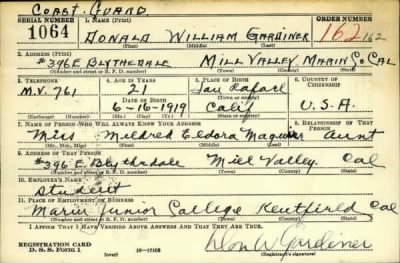 Coast Guard.
SERIAL NUMBER 1. NAME (Print) ORDER NUMBER
1064 Donald William Gardiner 162 162
(First) (Middle) (Last)
2. ADDRESS (Print)
#396 E Blythedale Mill Valley, Marin Co Cal
(Number and street or R. F. D. number) (Town) (County) (State)
3. TELEPHONE 4. AGE IN YEARS 5. PLACE OF BIRTH 6. COUNTRY OF CITIZENSHIP
M.V. 761 21 San Rafael
DATE OF BIRTH
6-16-1919 Calif U.S.A.
(Exchange) (Number) (Mo.) (Day) (Yr.) (State or country)
7. NAME OF PERSON WHO WILL ALWAYS KNOW YOUR ADDRESS 8. RELATIONSHIP OF THAT PERSON
Miss Mildred Eldora Maguire Aunt
(Mr., Mrs., Miss) (First) (Middle) (Last)
9. ADDRESS OF THAT PERSON
#396 E. Blythedale Mill Valley. Cal
(Number and street or R. F. D. number) (Town) (County) (State)
10. EMPLOYER'S NAME
Student
11. PLACE OF EMPLOYMENT OR BUSINESS
Marin Junior College Kentfield Cal
(Number and street or R. F. D. number) (Town) (County) (State)
I AFFIRM THAT I HAVE VERIFIED ABOVE ANSWERS AND THAT THEY ARE TRUE.
REGISTRATION CARD
D. S. S. Form 1 16-17105 Don W Gardiner
(Registrant's signature)